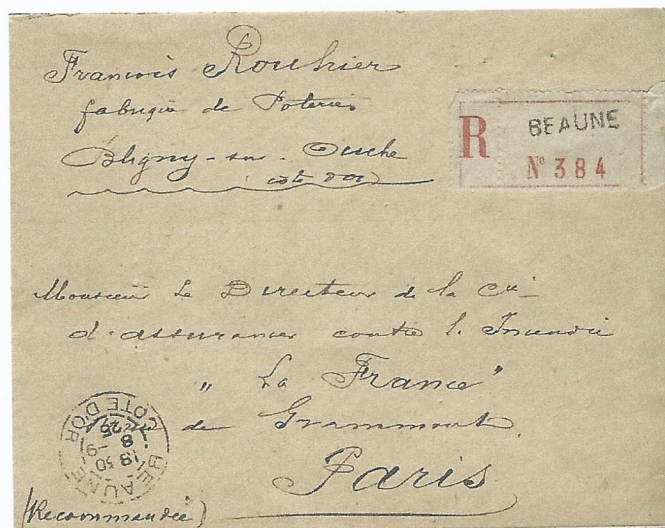 François Rouhier
fabrique de Poteries
Bligny-sur-Ouche
(côte d'Or)
R
BEAUNE
Nº 384
Monsieur Le Directeur de la Cie
d'assurances contre l'Incendie
"La France"
de Grammont
Paris
(Recommandée)
BEAUNE
18 30
8 -9
25
COTE D'OR